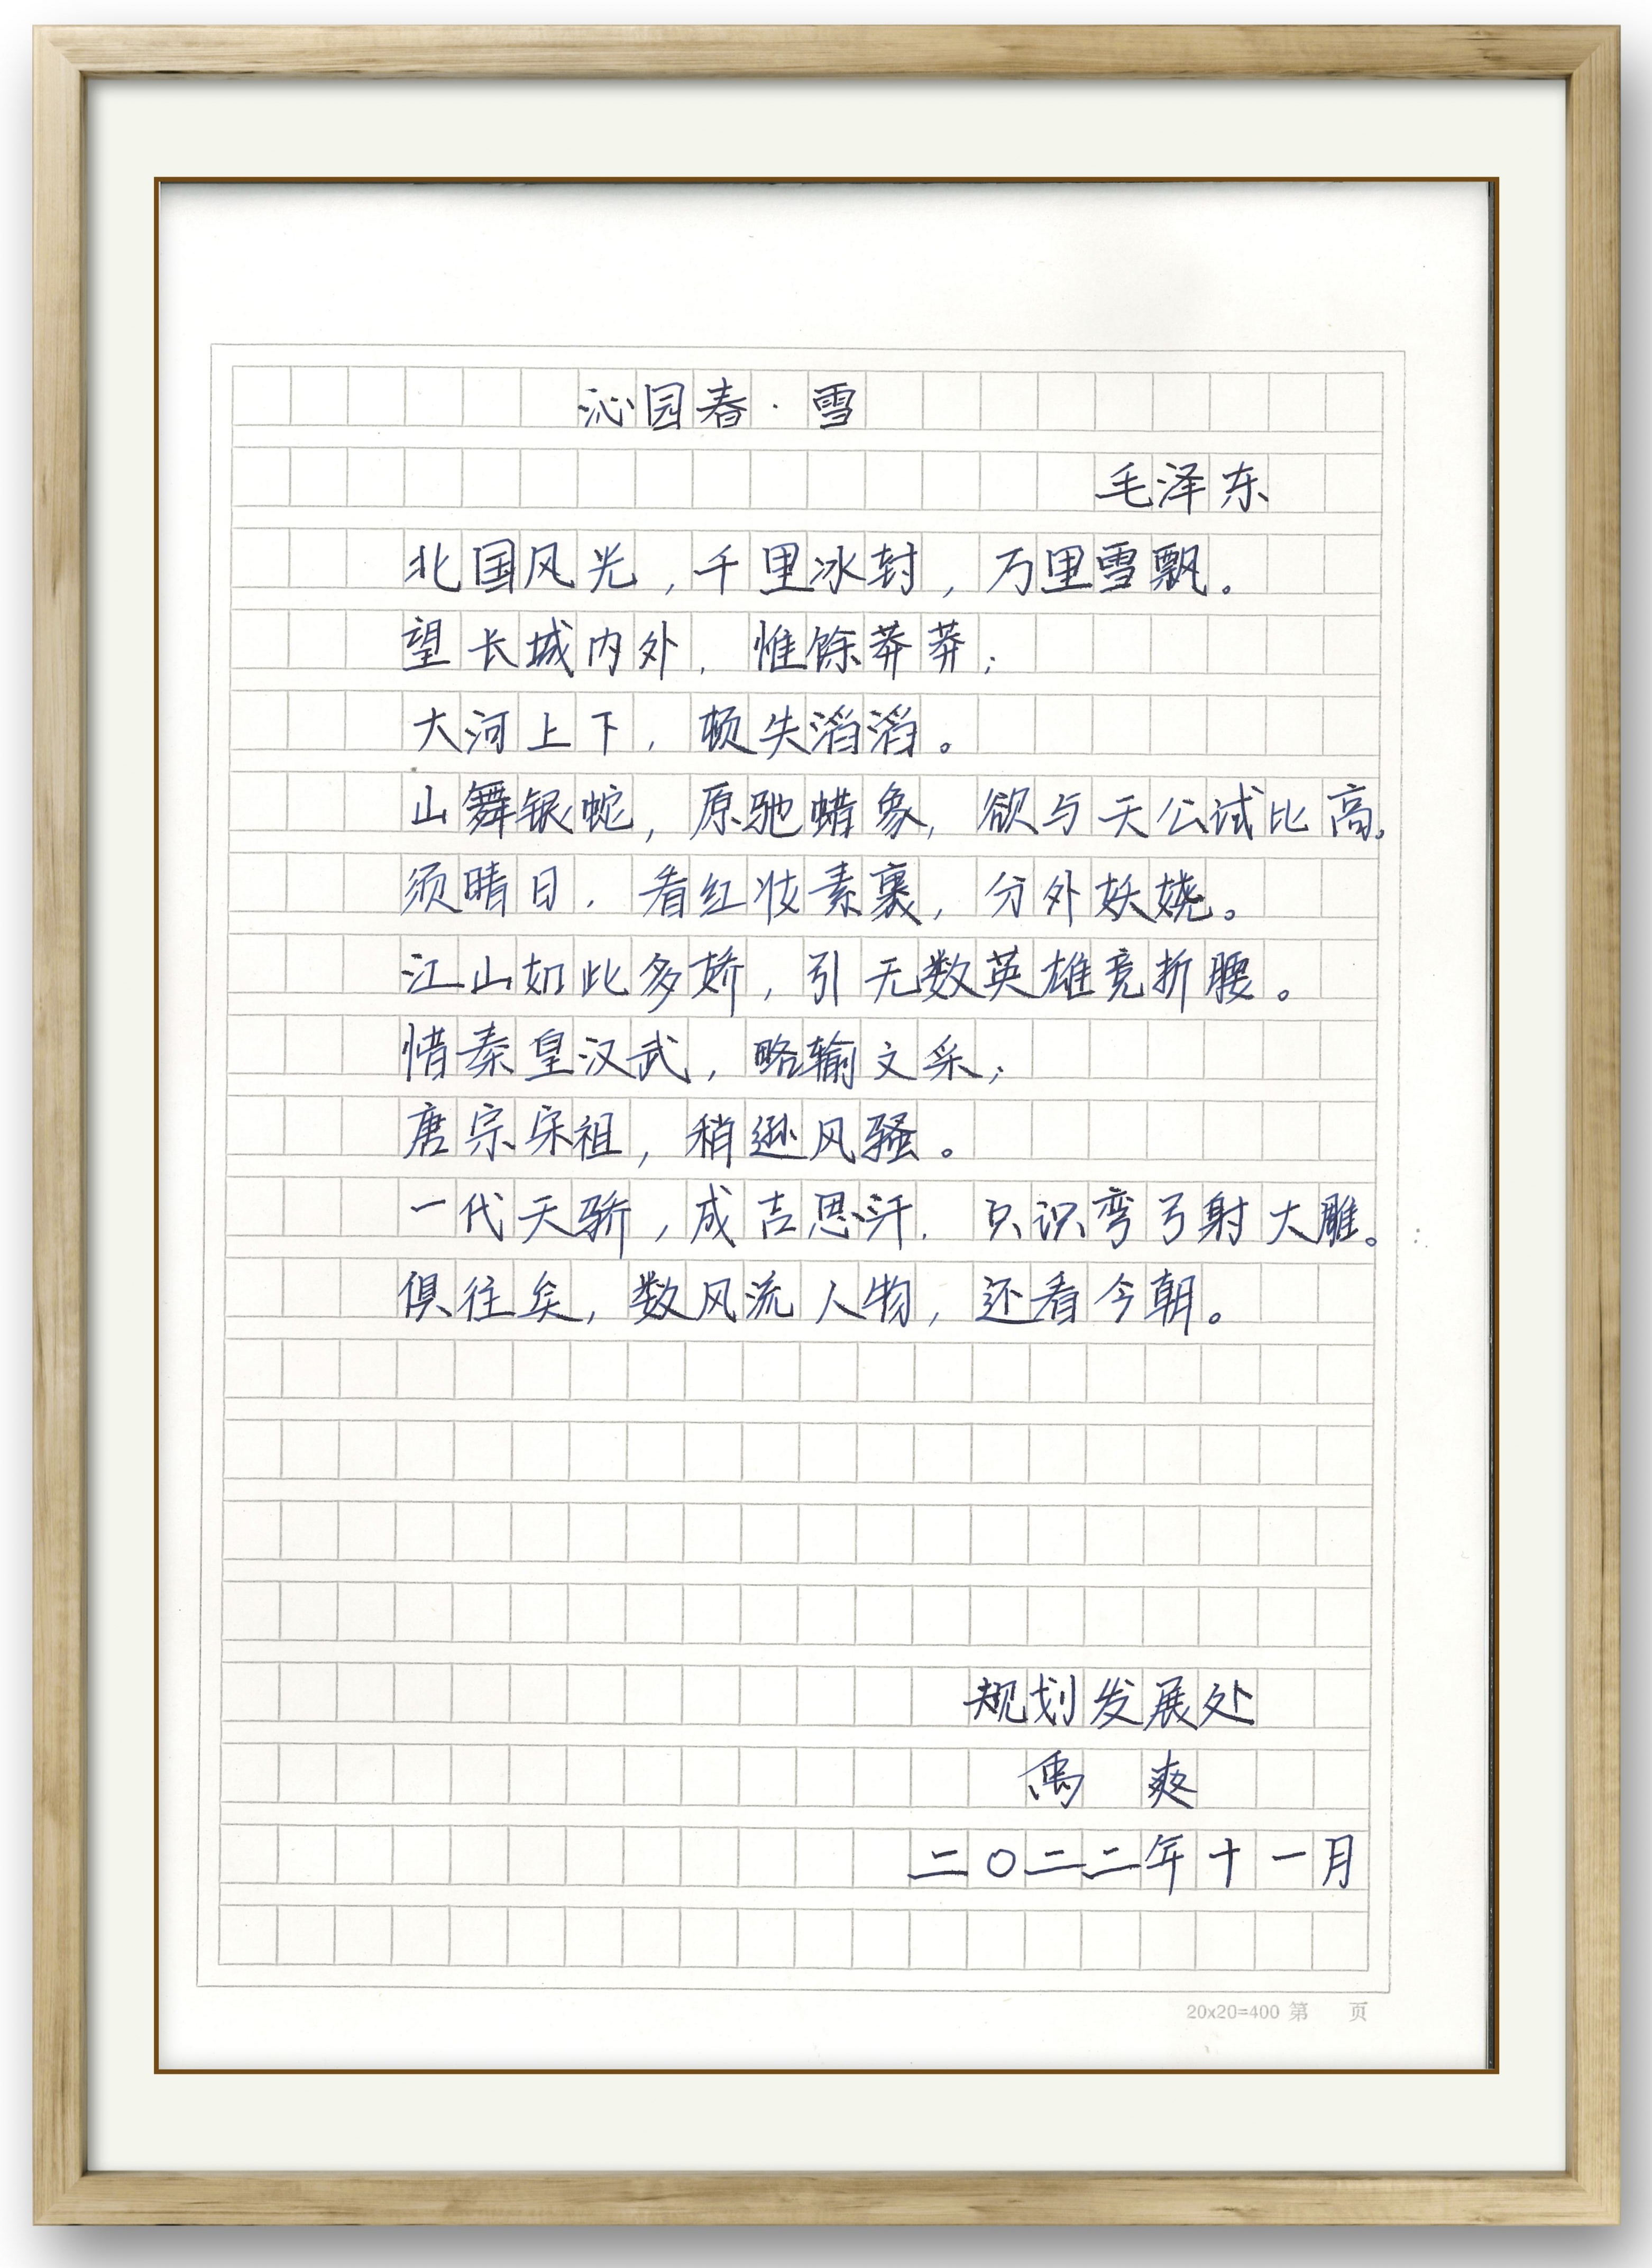 沁园春·雪
毛泽东
北国风光，千里冰封，万里雪飘。
望长城内外，惟馀莽莽；
大河上下，顿失滔滔。
山舞银蛇，原驰蜡象，欲与天公试比高。
须晴日，看红妆素裹，分外妖娆。
江山如此多娇，引无数英雄竞折腰。
惜秦皇汉武，略输文采；
唐宗宋祖，稍逊风骚。
一代天骄，成吉思汗，只识弯弓射大雕。
俱往矣，数风流人物，还看今朝。
规划发展处
禹 爽
二〇二二年十一月
20x20=400 第 页